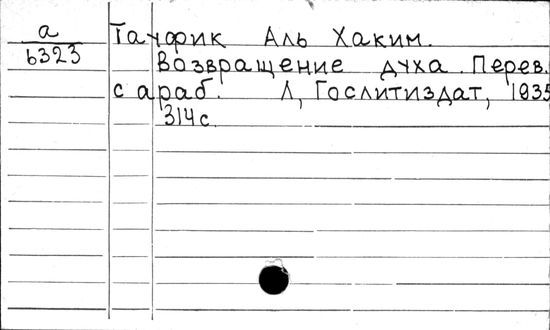 а Тауфик Аль Хаким.
6323 Возвращение духа. Перев.
с араб. Л, Гослитиздат, 1935
314 с.